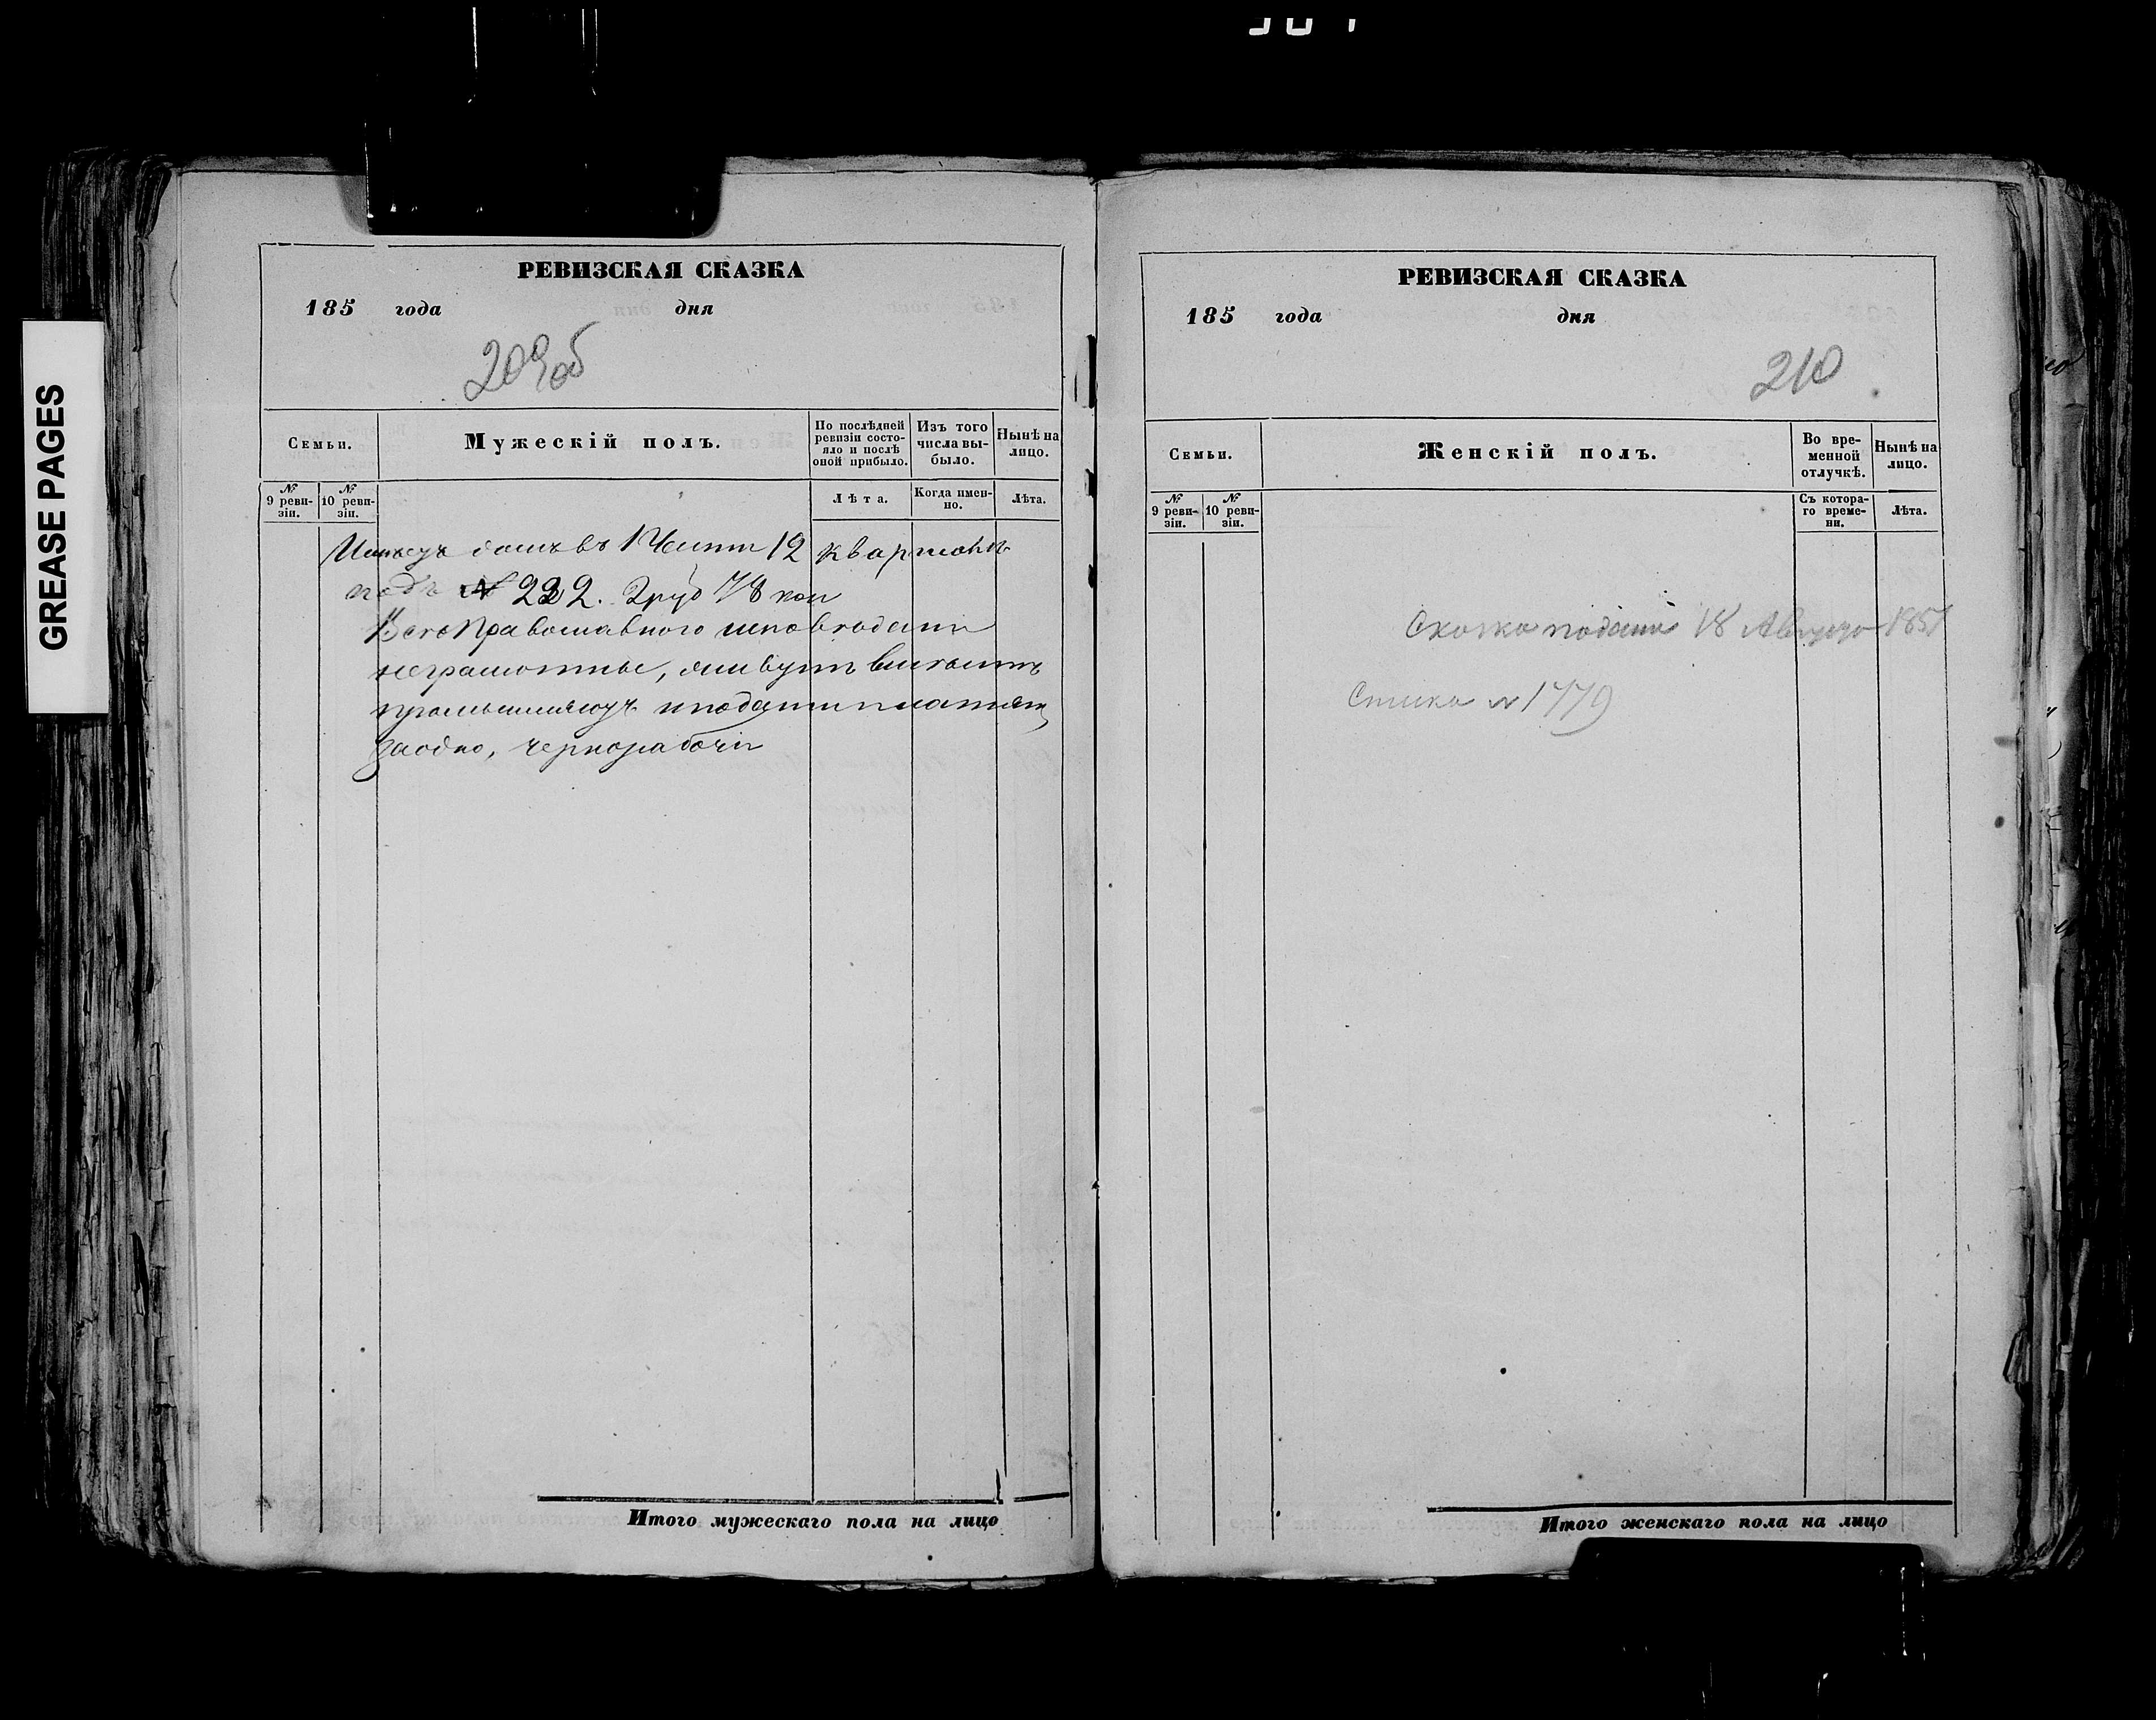 GREASE PAGES
РЕВИЗСКАЯ СКАЗКА
185 года дня
209об
Семьи.
Мужескій полъ.
По послѣдней ревизіи состо-
яло и послѣ
оной прибыло.
Изъ того
числа вы-
было.
Нынѣ на
лицо.
№ 9 реви-
зіи.
№ 10 реви-
зіи.
Лѣта.
Когда имен-
но.
Лѣта.
Имѣютъ домъ въ 1 Части 12 кварталѣ
подъ № 222. 2 руб 78 коп
Всѣ Православного исповѣдани
неграмотные, живутъ вмѣстѣ
промышляютъ и подати платятъ
заодно, чернорабочи
Итого мужескаго пола на лицо
РЕВИЗСКАЯ СКАЗКА
185 года дня
210
Семьи.
Женскій полъ.
Во вре-
менной
отлучкѣ.
Нынѣ на
лицо.
№ 9 реви-
зіи.
№ 10 реви-
зіи.
Съ котора-
го време-
ни.
Лѣта.
Сказка подана 18 Августа 185
№ 1779
Итого женскаго пола на лицо